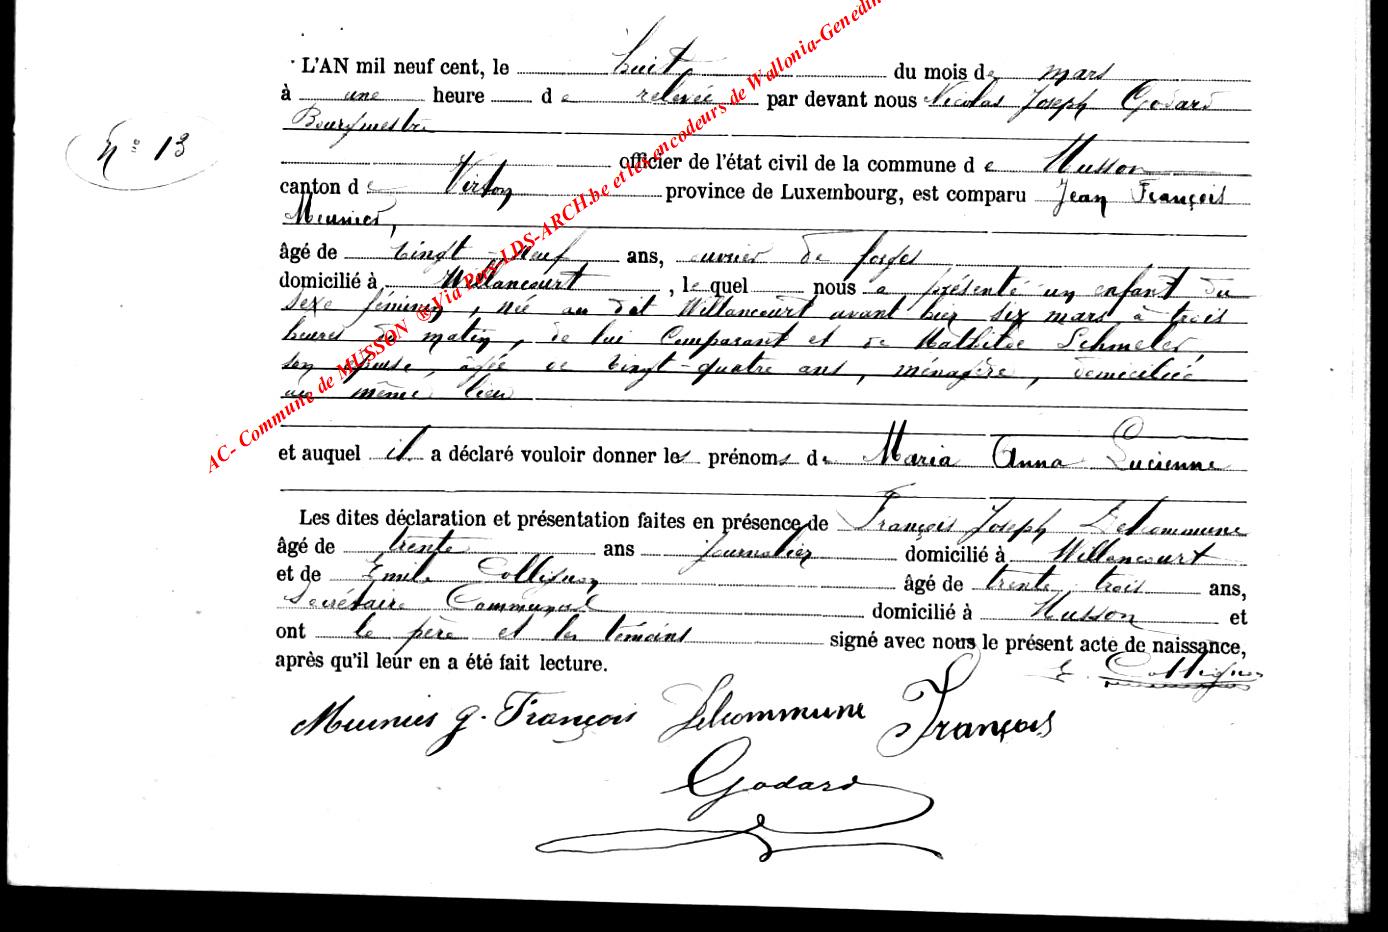 L'AN mil neuf cent, le huit du mois de mars
à une heure de relevée par devant nous Nicolas Joseph Godard
Bourgmestre
N° 13
officier de l'état civil de la commune de Musson
canton de Virton province de Luxembourg, est comparu Jean François
Meunier,
âgé de vingt neuf ans, ouvrier de forges
domicilié à Willancourt, lequel nous a présenté un enfant du
sexe féminin, née au dit Willancourt avant hier six mars à trois
heures du matin, de lui comparant et de Mathilde Schmeler,
son épouse, âgée de vingt-quatre ans, ménagère, domiciliée
au même lieu
et auquel il a déclaré vouloir donner les prénoms de Maria Anna Lucienne
Les dites déclaration et présentation faites en présence de François Joseph Delcommune
âgé de trente ans journalier domicilié à Willancourt
et de Emile Collignon âgé de trente trois ans,
Secrétaire Communal domicilié à Musson et
ont le père et les témoins signé avec nous le présent acte de naissance,
après qu'il leur en a été fait lecture.
E. Collignon
Meunier J. François Delcommune François
Godard
AC- Commune de MUSSON ®Via Pers LDS-ARCH.be et les encodeurs de Wallonia-Genedin